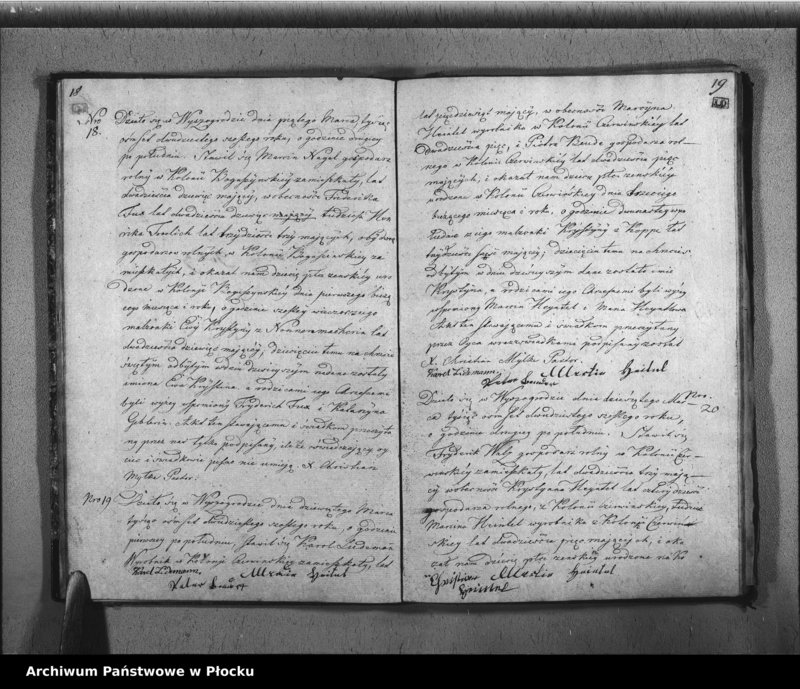 18
Nro
18.
Działo się w Wyszogrodzie dnia piątego Marca tysiąc
ośmset dwudziestego szostego roku, o godzinie drugiey
po południu. Stawił się Marcin Nagel gospodarz
rolny w Kolonii zamieszkały, lat
dwadzieścia dziewięć maiący, w obecności Friderika
Fux lat dwadzieścia dziewięć tudzież
lat trzydzieści trzy maiących, obydwóch
gospodarzy rolnych w Kolonii za
mieszkałych, i okazał nam dziecię płci żenskiey uro
dzone w Kolonii dnia pierwszego bieżą
cego miesiąca i roku, o godzinie szostey wieczorem z iego
małżonki Ewy Krystyny z lat
dwadzieścia dziewięć maiącey, dziecięciu temu na chrzcie
świętym odbytym w dniu dzisieyszym nadane zostały
imiona Ewa Krystina, a rodzicami iego chrzestnemi
byli wyżey wspomniony Fryderyk Fux i Katarzyna
Akt ten stawaiącemu i świadkom przeczyta
ny przez nas tylko podpisany, ile że oświadczaiący oy
ciec i świadkowie pisać nie umieią. X. Christian
Mylke Pastor.
Nro 19
Działo się w Wyszogrodzie dnia dziewiątego Marca
tysiąc ośmset dwudziestego szostego roku, o godzinie
pierwszey po południu, stawił się Karol Lidemann
Wyrobnik w Kolonii Czerwinskiey zamieszkały, lat
Karl Lidemann Mertin Heintel
Peter
19
lat pięćdziesiąt maiący, w obecności Marcyna
Heintel wyrobnika w Kolonii Czerwinskiey lat
dwadzieścia pięć, i Piotra gospodarza rol-
nego w Kolonii Czerwinskiey lat dwadzieścia pięć
maiących, i okazał nam dziecię płci żenskiey
urodzone w Kolonii Czerwinskiey dnia trzeciego
bieżącego miesiąca i roku, o godzinie dwunastey w po
łudnie z iego małżonki Krystyny z Koppe lat
trzydzieści sześć maiącey; dziecięciu temu na chrzcie
odbytym w dniu dzisieyszym dane zostało imie
Krystyna, a rodzicami iego chrzestnemi byli wyżey
wspomniony Marcin Heyntel i Maria
Akt ten stawaiącemu i świadkom przeczytany
przez Oyca wraz z świadkami podpisany został
X. Christian Mylke Pastor.
Karl Lidemann Mertin Heintel
Peter
Nro.
20
Działo się w Wyszogrodzie dnia dziewiątego Mar
ca tysiąc ośmset dwudziestego szostego roku,
o godzinie drugiey po południu. Stawił się
Fryderik Waly gospodarz rolny w Kolonii Czer-
winskiey zamieszkały, lat dwadzieścia trzy maią-
cy w obecności Krystyana Heyntel lat czterdzieści
gospodarza rolnego, z Kolonii Czerwinskiey, tudzież
Marcina Heintel wyrobnika z Kolonii Czerwin
skiey lat dwadzieścia pięć maiących, i oka
zał nam dziecię płci żenskiey urodzone na Ko
Christian Mertin Heintel
Heintel
Archiwum Państwowe w Płocku